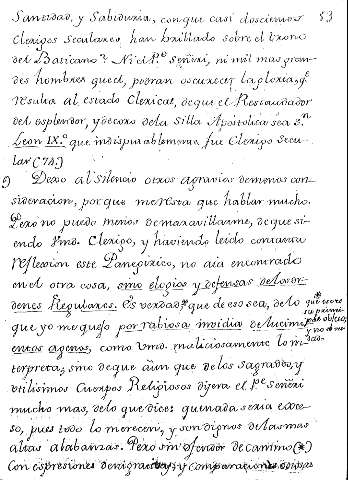 53
Santidad, y Sabiduria, con que casi doscientos
Clerigos Seculares han brillado sobre el trono
del Baticano? Ni el P.e Señeri, ni mil mas gran-
des hombres que el, podran oscurecer la gloria, q.e
resulta al estado Clerical, de que el Restaurador
del esplendor, y decoro de la Silla Apostolica sea S.n
Leon IX.o que indisputablemente fue Clerigo Secu-
lar (74.)
9) Dexo al Silencio otros agravios de menos con-
sideracion, por que me resta que hablar mucho.
Pero no puedo menos de maravillarme, de que si-
endo Vmd. Clerigo, y haviendo leido con tanta
reflexion este Panegirico, no aia encontrado
en el otra cosa, sino elogios y defensas de las or-
denes Regulares. Es verdad,* que de eso sea, de lo
que yo me quejo por rabiosa invidia de lucimi-
entos agenos, como Vmd. maliciosamente lo in-
terpreta; sino de que aun que de los Sagrados, y
utilisimos Cuerpos Religiosos dijera el P.e Señeri
mucho mas, de lo que dice: que nada seria exce-
so, pues todo lo merecen, y son dignos de las mas
altas alabanzas. Pero sin ofender de camino (*)
Con espresiones denigrativas, y comparaciones
* que
su primi-
objeto,
y no